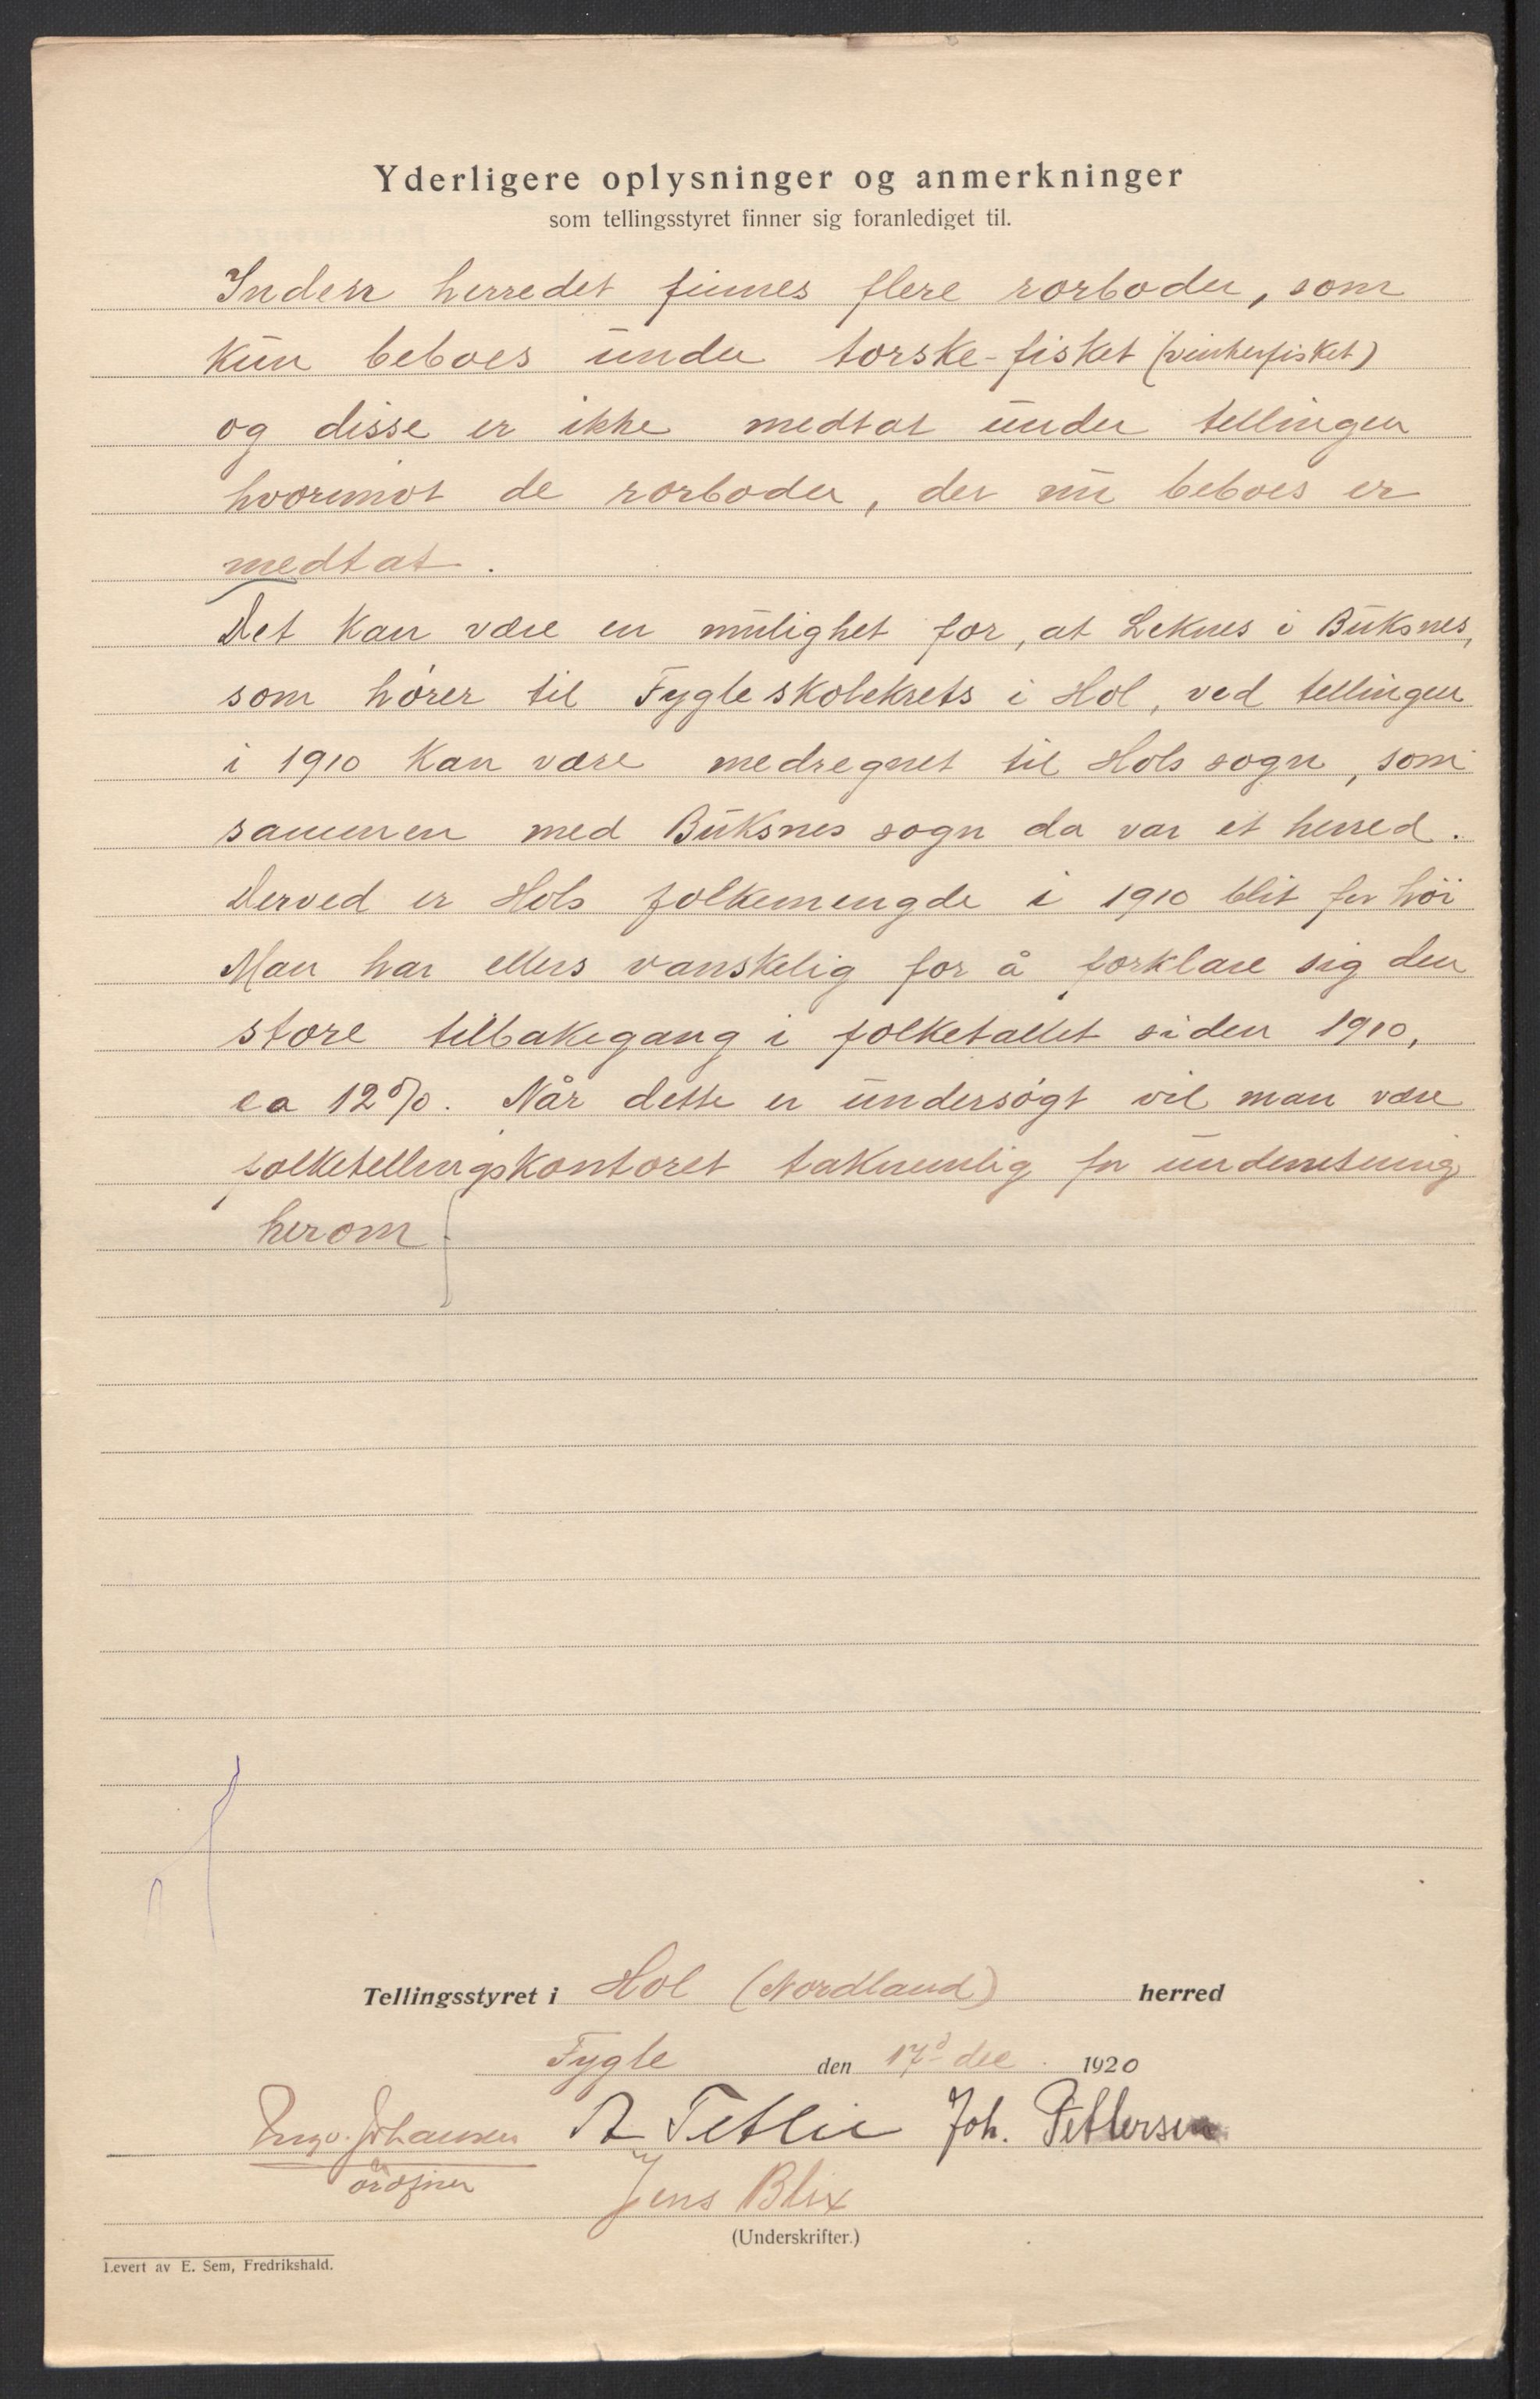 Yderligere oplysninger og anmerkninger
som tellingsstyret finner sig foranlediget til.
Inden herredet finnes flere rorboder, som
kun beboes under torske-fisket (vinterfisket)
og disse er ikke medtat under tellingen
hvorimot de rorboder, der nu beboes er
medtat.
Det kan være en mulighet for, at Leknes i Buksnes,
som hører til Fygle skolekrets i Hol, ved tellingen
i 1910 kan være medregnet til Hols sogn, som
sammen med Buksnes sogn da var et herred.
Derved er Hols folkemengde i 1910 blit for høi
Man har ellers vanskelig for å forklare sig den
store tilbakegang i folketallet siden 1910,
ca 12%. Når dette er undersøgt vil man være
folketellingskontoret taknemlig for underretning
herom
Tellingsstyret i Hol (Nordland) herred
Fygle den 17d dec. 1920
Johansen A Tetlie Joh. Pettersen
ordfører Jens Blix
(Underskrifter.)
Levert av E. Sem, Fredrikshald.